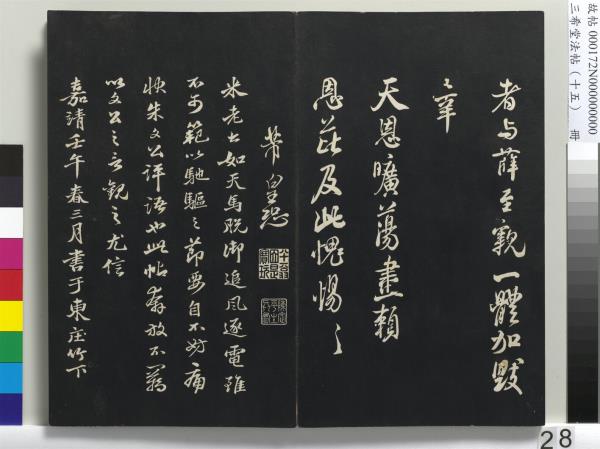 者与薛至親一體加毀
辜
天恩曠蕩盡賴
恩芘及此愧惕〻
芾皇恐
米老書如天馬脫御追風逐電雖
不可範以馳驅之節要自不妨痛
快朱文公評語也此帖奔放不羈
以文公之言觀之尤信
嘉靖壬午春三月書于東庄竹下
故帖 000172N000000000
三希堂法帖（十五） 冊
28